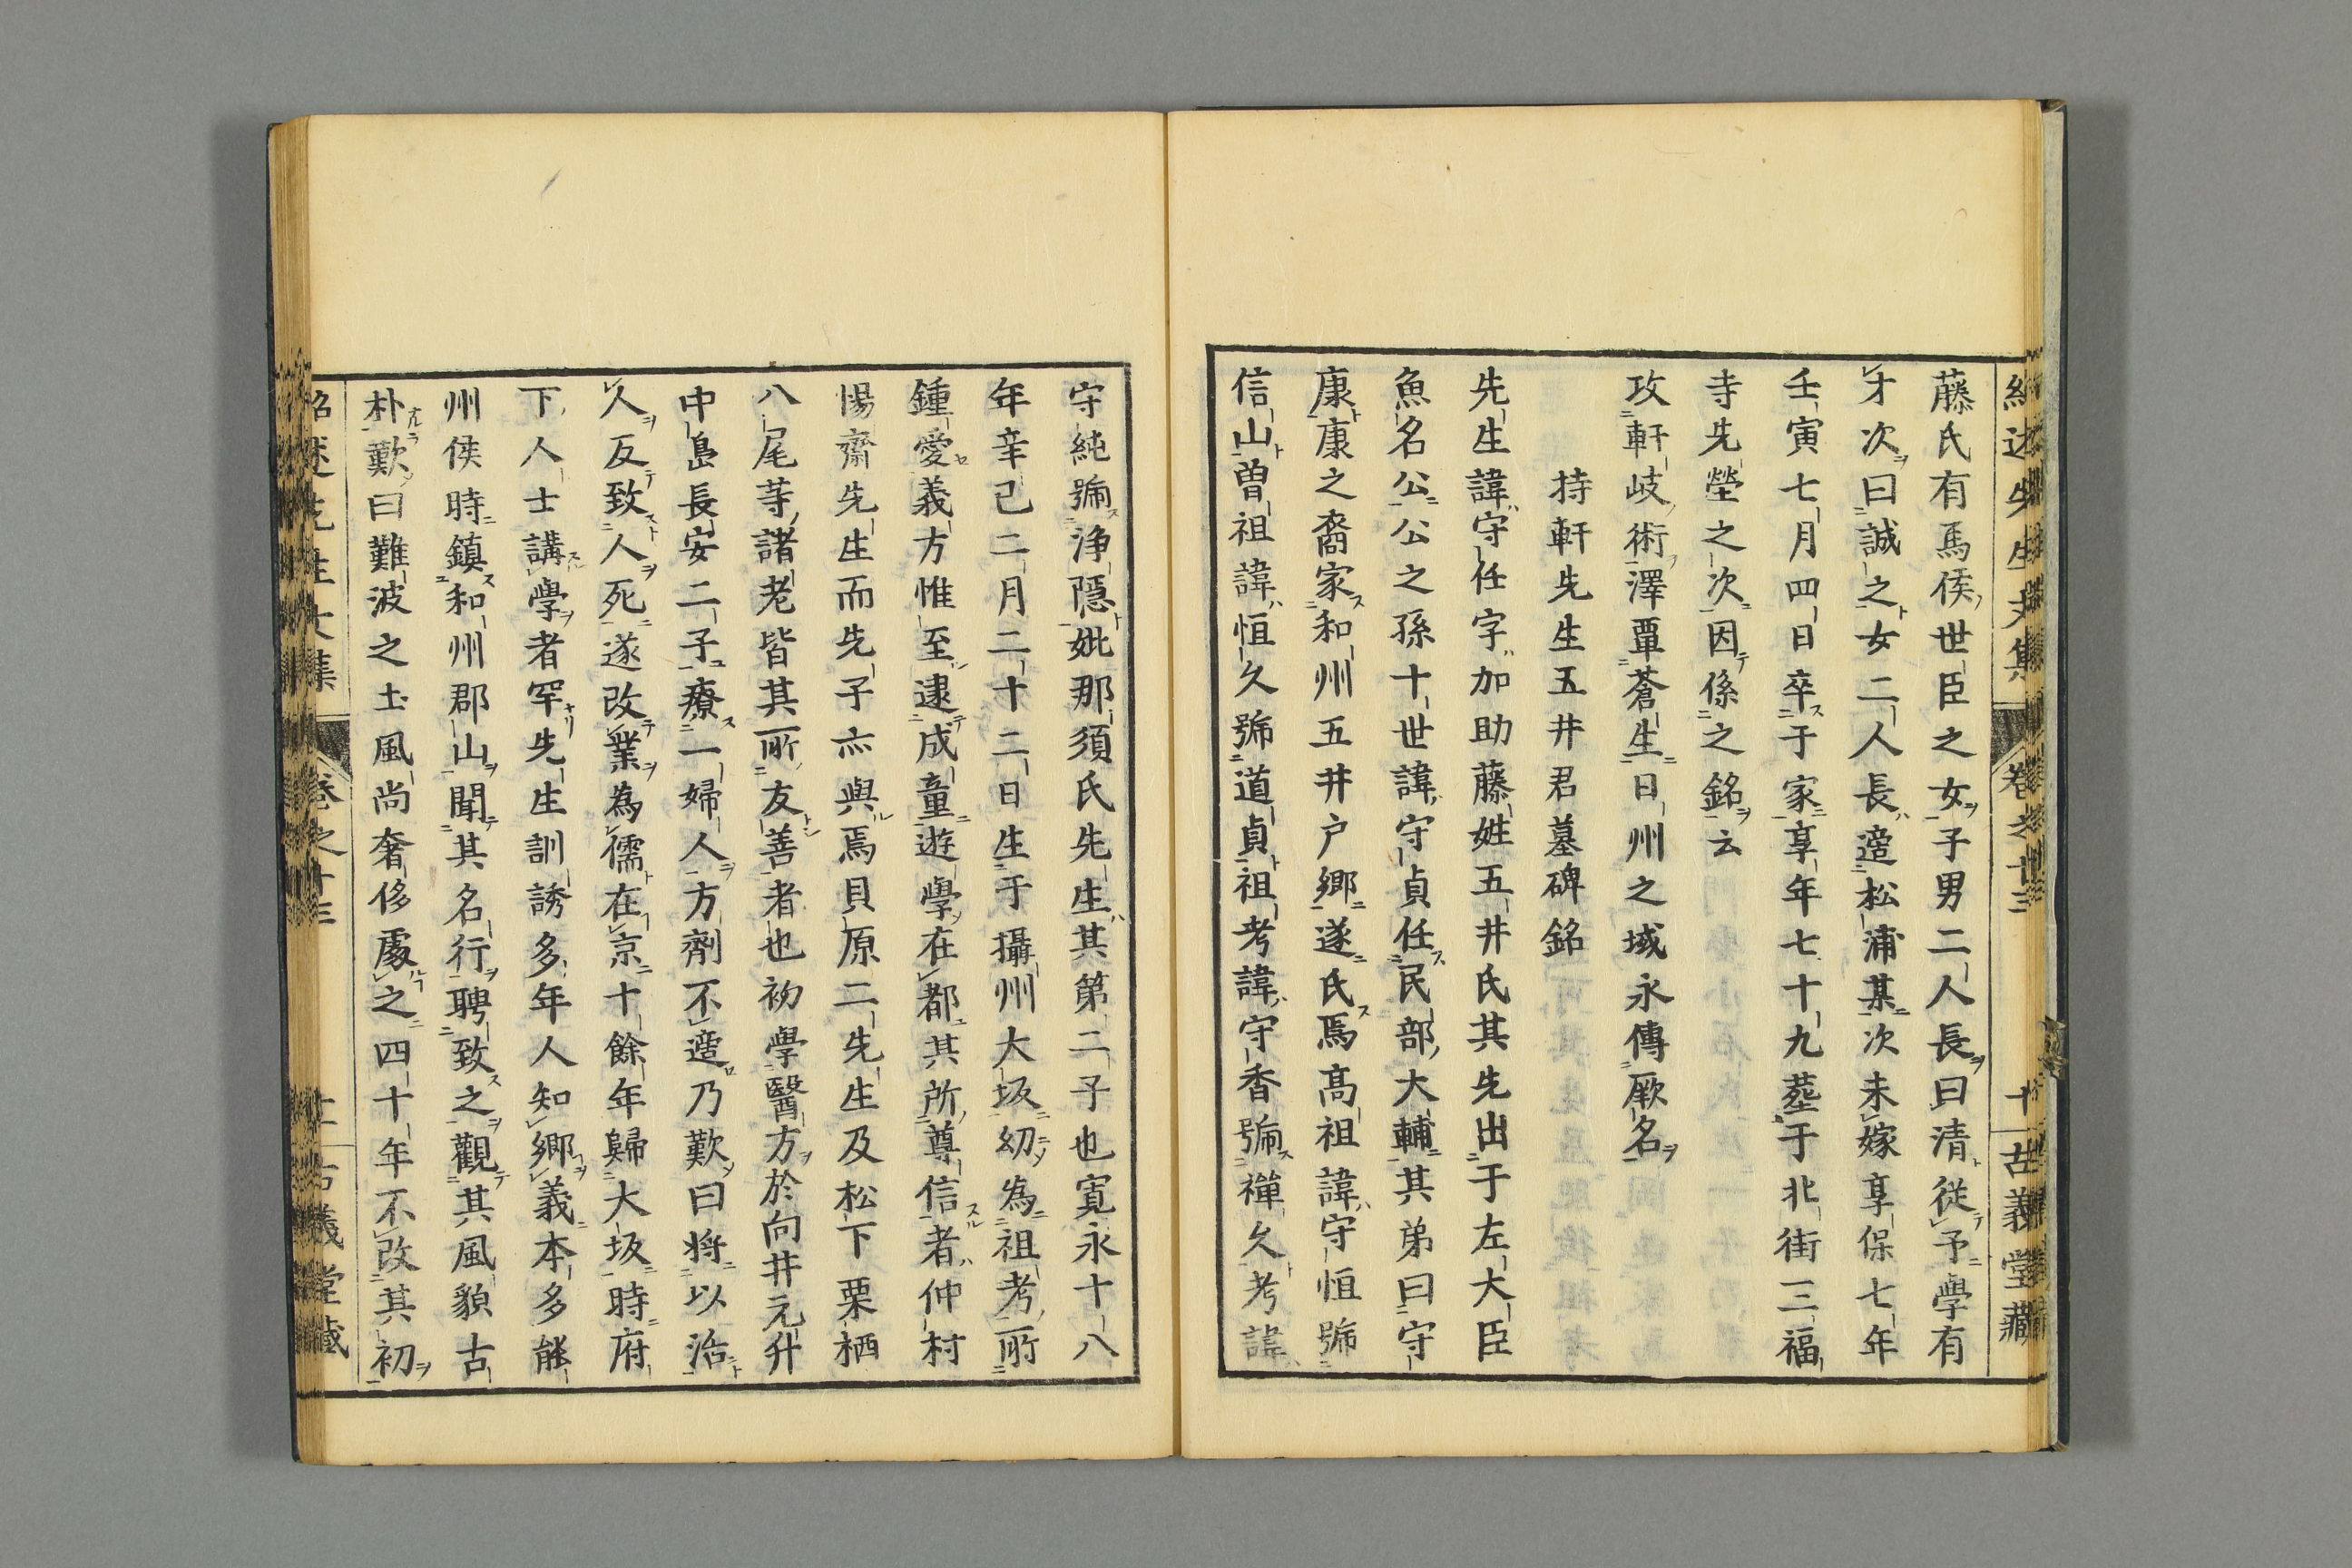 紹述先生文集 卷之十三 十 古義堂藏
藤氏有馬侯世臣之女子男二人長曰清從予學有
才次曰誠之女二人長適松浦某次未嫁享保七年
壬寅七月四日卒于家享年七十九葬于北街三福
寺先塋之次因係之銘云
攻軒岐術澤覃蒼生日州之域永傳厥名
持軒先生五井君墓碑銘
先生諱守任字加助藤姓五井氏其先出于左大臣
魚名公公之孫十世諱守貞任民部大輔其弟曰守
康康之裔家和州五井戶鄉遂氏焉高祖諱守恒號
信山曽祖諱恒久號道貞祖考諱守香號禪久考諱
守純號浄隱妣那須氏先生其第二子也寬永十八
年辛巳二月二十二日生于攝州大坂幼為祖考所
鍾愛義方惟至逮成童遊學在都其所尊信者仲村
惕齋先生而先子亦與焉貝原二先生及松下栗栖
八尾等諸老皆其所友善者也初學醫方於向井元升
中島長安二子療一婦人方劑不適乃歎曰將以治
人反致人死遂改業為儒在京十餘年歸大坂時府
下人士講學者罕先生訓誘多年人知鄉義本多能
州侯時鎮和州郡山聞其名行聘致之觀其風貌古
朴歎曰難波之土風尚奢侈處之四十年不改其初
紹述先生文集 卷之十三 十一 古義堂藏